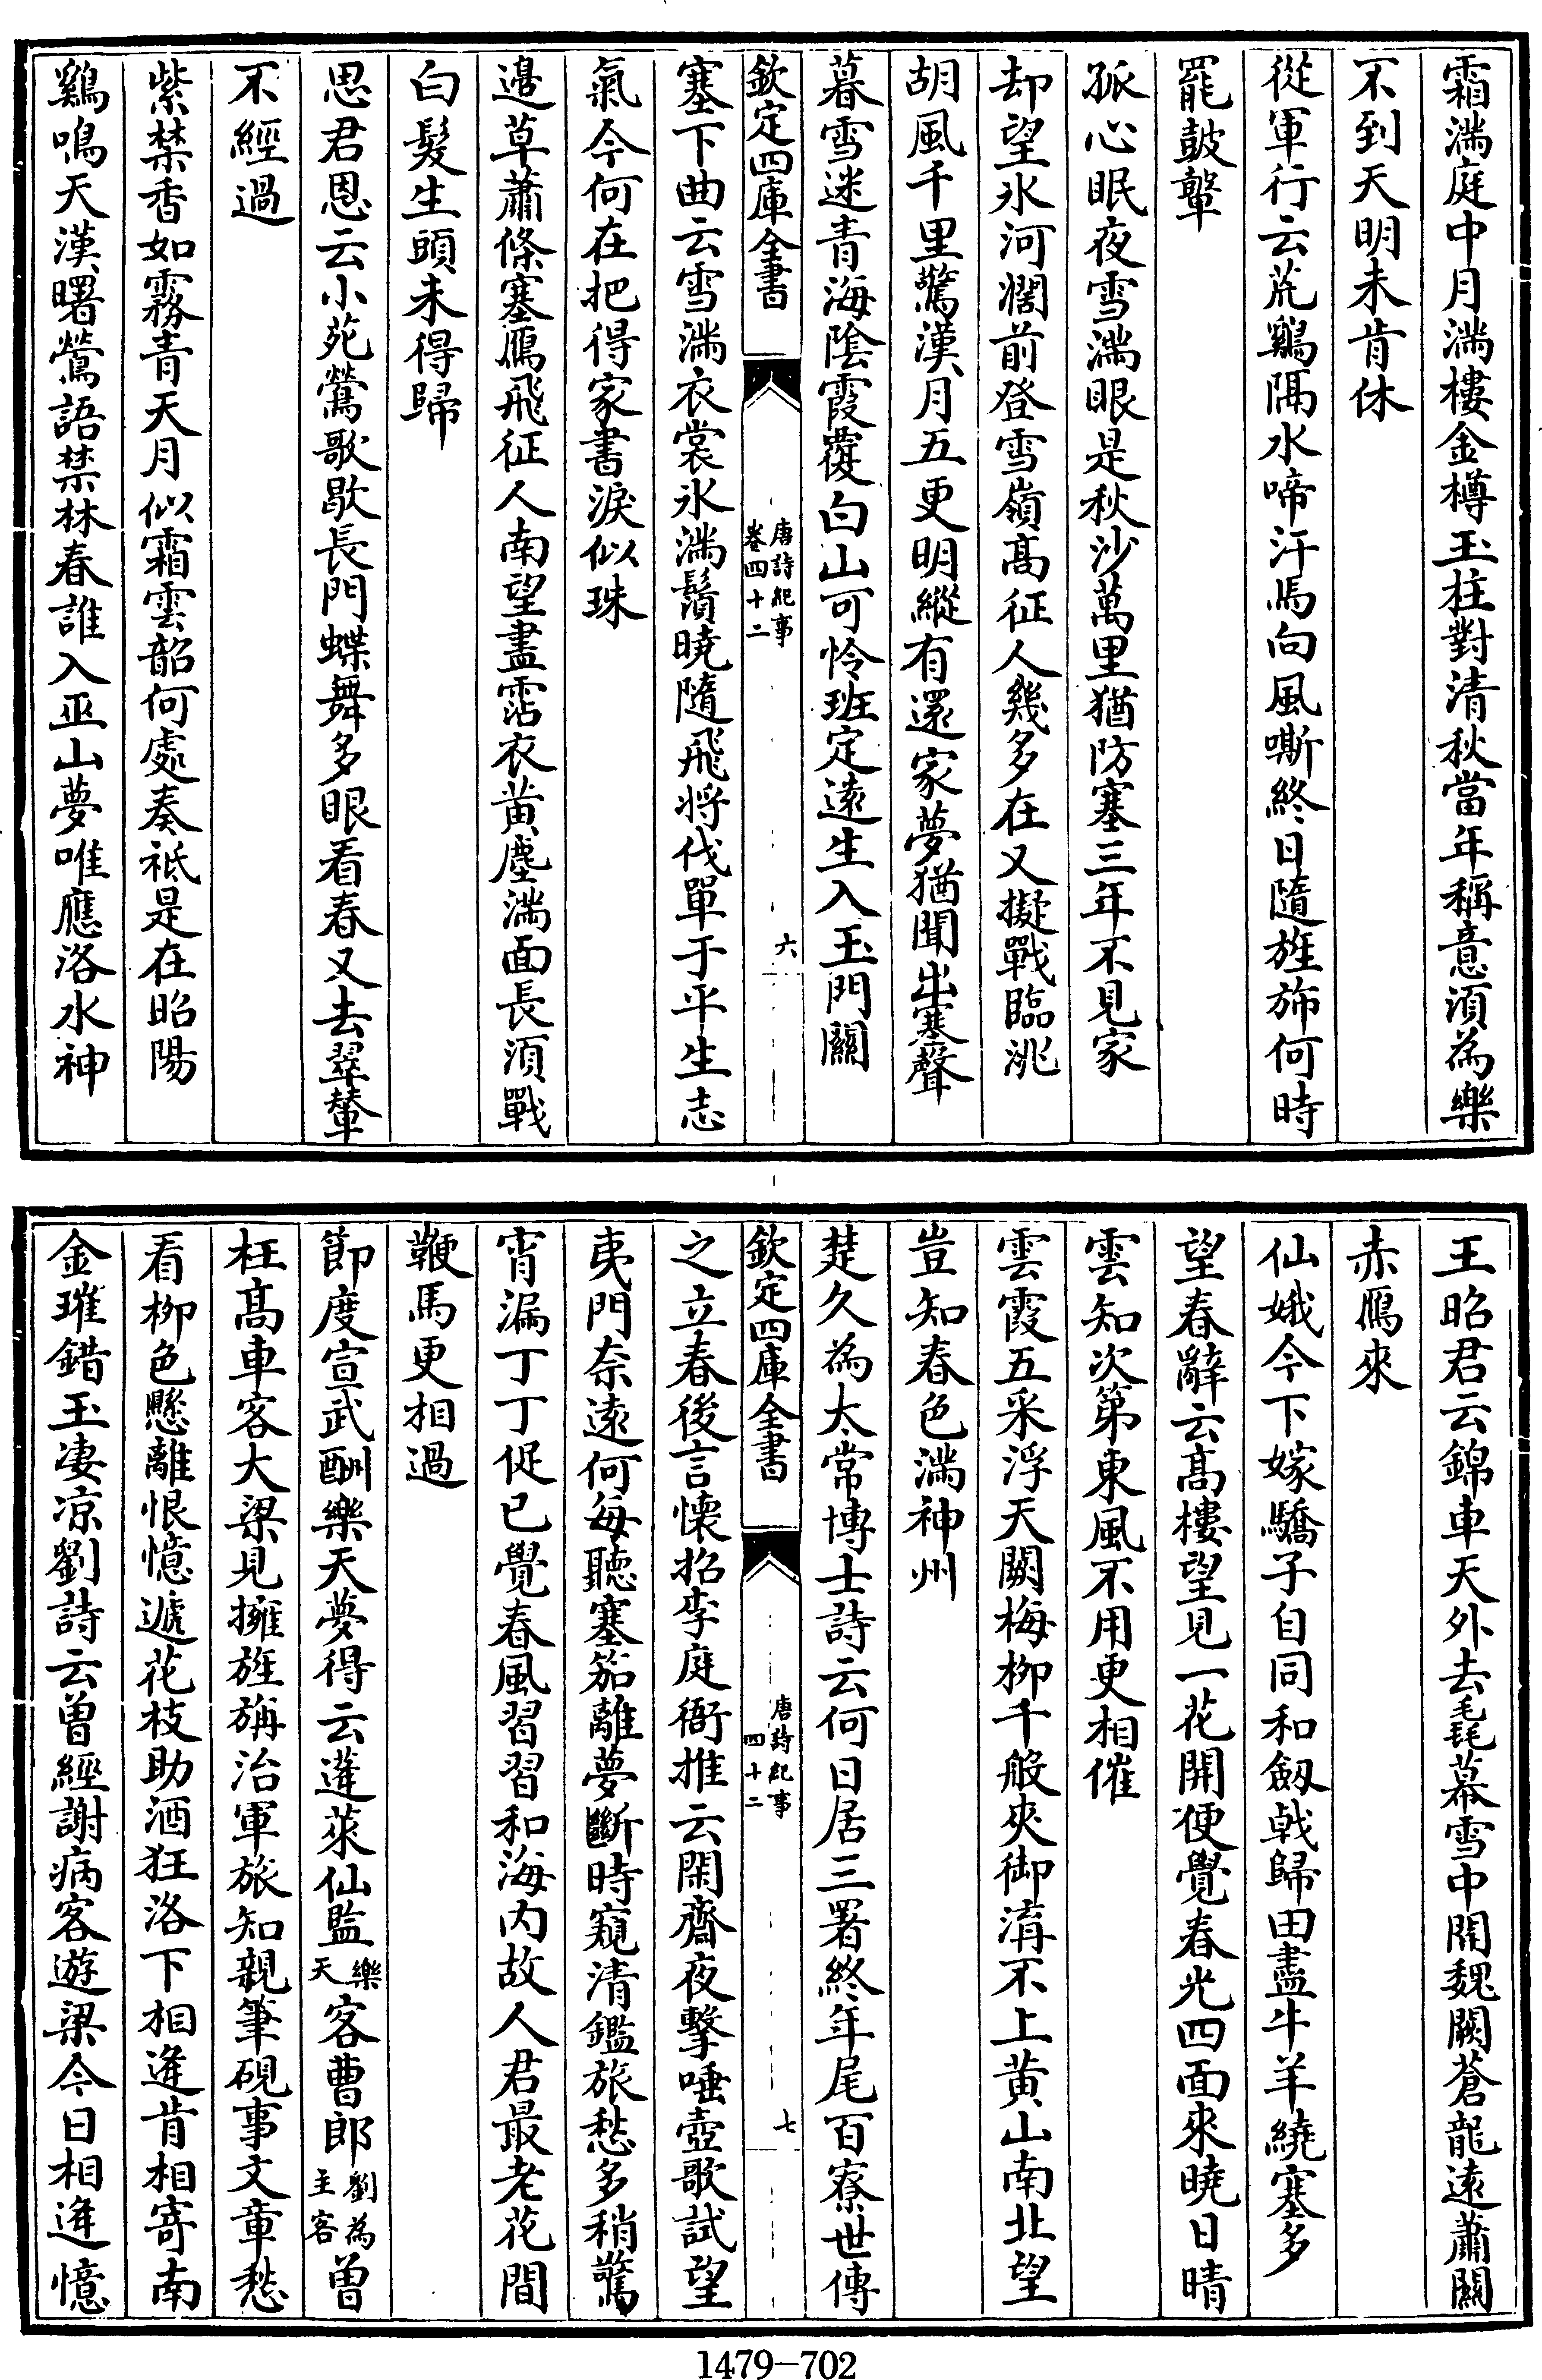 霜滿庭中月滿樓金樽玉柱對清秋當年稱意須為樂
不到天明未肯休
從軍行云荒鷄隔水啼汗馬向風嘶終日隨旌斾何時
罷鼓鼙
孤心眠夜雪滿眼是秋沙萬里猶防塞三年不見家
却望氷河濶前登雪嶺髙征人幾多在又擬戰臨洮
胡風千里驚漢月五更明縱有還家夢猶聞出塞聲
暮雪迷青海陰霞覆白山可憐班定逺生入玉門關
欽定四庫全書
唐詩紀事
卷四十二
六
塞下曲云雪滿衣裳氷滿鬚曉隨飛將伐單于平生志
氣今何在把得家書淚似珠
邉草蕭條塞鴈飛征人南望盡霑衣黄塵滿面長須戰
白髮生頭未得歸
思君恩云小苑鶯歌歇長門蝶舞多眼看春又去翠輦
不經過
紫禁香如霧青天月似霜雲韶何處奏祗是在昭陽
鷄鳴天漢曙鶯語禁林春誰入巫山夢唯應洛水神
王昭君云錦車天外去毳幕雪中開魏闕蒼龍逺蕭關
赤鴈來
仙娥今下嫁驕子自同和劔戟歸田盡牛羊繞塞多
望春辭云髙樓望見一花開便覺春光四面來曉日晴
雲知次第東風不用更相催
雲霞五采浮天闕梅柳千般夾御溝不上黄山南北望
豈知春色滿神州
楚久為太常博士詩云何日居三署終年尾百寮世傳
欽定四庫全書
唐詩紀事
四十二
七
之立春後言懷招李庭衙推云閑齋夜擊唾壺歌試望
夷門奈逺何每聽塞笳離夢斷時窺清鑑旅愁多稍驚
宵漏丁丁促已覺春風習習和海内故人君最老花間
鞭馬更相過
節度宣武酬樂天夢得云蓬萊仙監樂天客曹郎劉為主客曾
枉髙車客大梁見擁旌旃治軍旅知親筆硯事文章愁
看柳色懸離恨憶遞花枝助酒狂洛下相逢肯相寄南
金璀錯玉凄凉劉詩云曾經謝病客遊梁今日相逢憶
1479-702